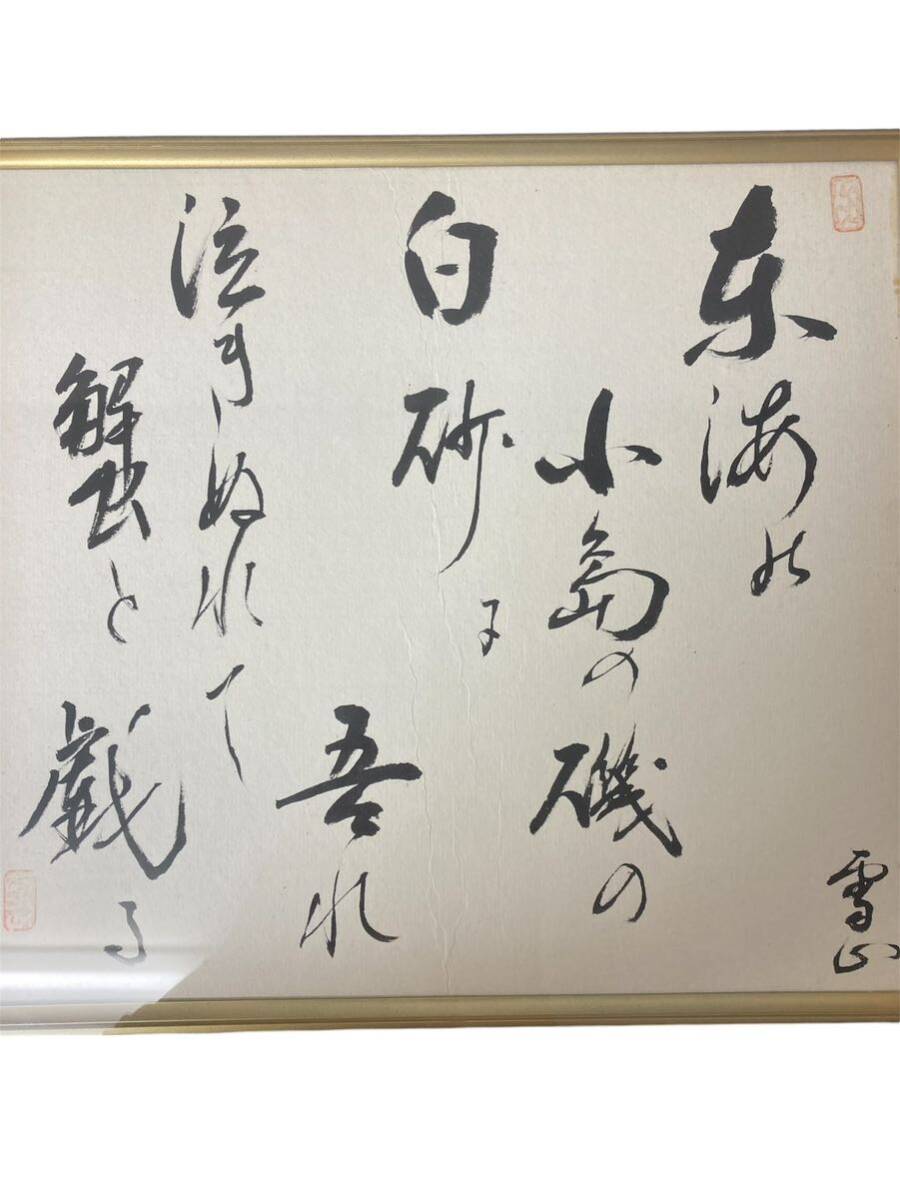 东海の
小島の磯の
白砂に
吾れ
泣きぬれて
蟹と戯る
雪山